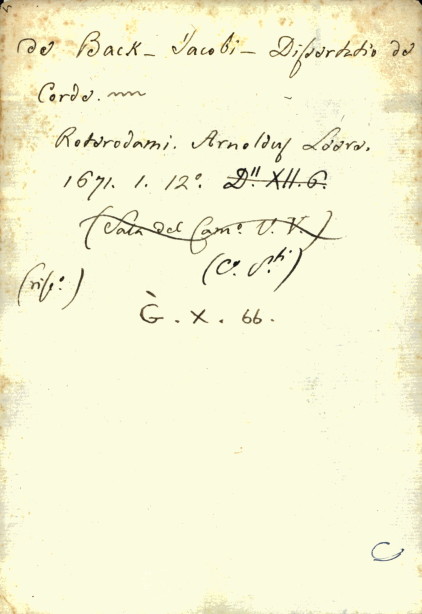 de Back - Jacobi - Dissertatio de
Corde.
Roterodami. Arnoldus Leers.
1671. 1. 12º. D.II XII. 6.
(Sala del Camº. V. V.)
(rispº.)
G. X. 66.